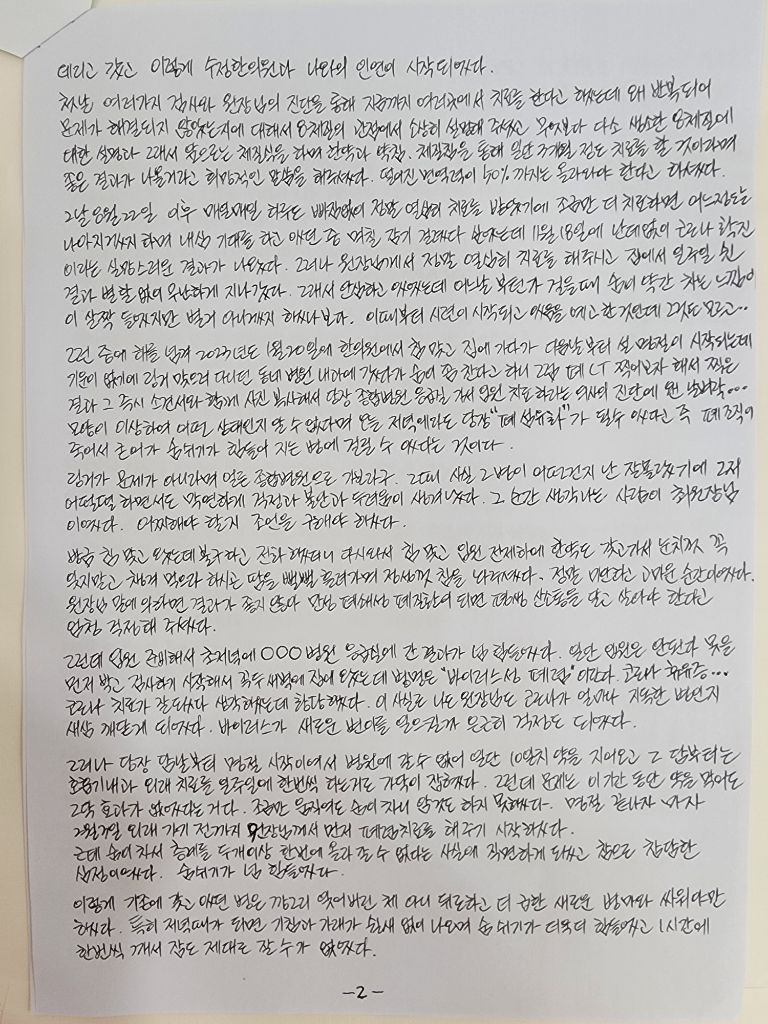 데리고 갔고 이렇게 수정한의원과 나와의 인연이 시작되었다.
첫날 여러가지 검사와 원장님의 진단을 통해 지금까지 여러곳에서 치료를 한다고 했는데 왜 반복되어
문제가 해결되지 않았는지에 대해서 8체질의 관점에서 소상히 설명해 주셨고 무엇보다 다소 생소한 8체질에
대한 설명과 그래서 앞으로는 체질식을 하며 한약과 약침, 체질침을 통해 일단 3개월 정도 치료를 할 것이라며
좋은 결과가 나올거라고 희망적인 말씀을 해주셨다. 떨어진 면역력이 50% 까지는 돌아와야 한다고 하셨다.
그날 8월 22일 이후 매일매일 하루도 빠짐없이 정말 열심히 치료를 받았기에 조금만 더 치료하면 어느정도는
나아지겠지 하며 내심 기대를 하고 있던 중 며칠 감기 걸렸다 싶었는데 11월 18일에 난데없이 코로나 확진
이라는 실망스러운 결과가 나왔다. 그러나 원장님께서 정말 열심히 치료를 해주시고 집에서 일주일 쉰
결과 별탈 없이 무난하게 지나갔다. 그래서 안심하고 있었는데 어느날 부턴가 걸을때 숨이 약간 차는 느낌이
이 살짝 들었지만 별거 아니겠지 하였나보다. 이때부터 시련이 시작되고 있음을 예고한 것인데 그것도 모르고..
그런 중에 해를 넘겨 2023년도 1월 20일에 한의원에서 침 맞고 집에 가다가 다음날부터 설 명절이 시작되는데
기운이 없기에 링거 맞으러 다니던 동네 병원 내과에 갔다가 숨이 좀 찬다고 하니 그럼 폐 CT 찍어보자 해서 찍은
결과 그 즉시 소견서와 함께 사진 복사해서 당장 종합병원 응급실 가서 입원 치료하라는 의사의 진단에 웬 날벼락...
모양이 이상하여 어떤 상태인지 알 수 없다며 오늘 저녁에라도 당장 "폐 섬유화"가 될수 있다고 즉 폐조직이
죽어서 굳어가 숨쉬기가 힘들어 지는 병에 걸릴 수 있다는 것이다.
링거가 문제가 아니라며 얼른 종합병원으로 가보라구. 그때 사실 그병이 어떤건지 난 잘몰랐기에 그저
어떨떨 하면서도 막연하게 걱정과 불안과 두려움이 생겨났다. 그 순간 생각나는 사람이 최원장님
이었다. 어찌해야 할지 조언을 구해야 하였다.
방금 침 맞고 왔는데 불구하고 전화 했더니 다시와서 침 맞고 입원 전제하에 한약도 갖고가서 눈치껏 꼭
잊지말고 챙겨 먹으라 하시곤 땀을 뻘뻘 흘려가며 정성껏 침을 놔주셨다. 정말 미안하고 고마운 순간이었다.
원장님 말에 의하면 결과가 좋지 않아 만성 폐쇄성 폐질환이 되면 평생 산소통을 달고 살아야 한다고
엄청 걱정해 주셨다.
그런데 입원 준비해서 초저녁에 ○○○ 병원 응급실에 간 결과가 넘 힘들었다. 일단 입원은 안된다 못을
먼저 박고 검사하기 시작해서 꼭두 새벽에 집에 왔는데 병명은 "바이러스성 폐렴" 이란다. 코로나 후유증...
코로나 치료가 잘 되었다 생각하였는데 황당했다. 이 사실로 나도 원장님도 코로나가 얼마나 지독한 병인지
새삼 깨닫게 되었다. 바이러스가 새로운 변이를 일으킬까 은근히 걱정도 되었다.
그러나 당장 담날부터 명절 시작이여서 병원에 갈수 없어 일단 10일치 약을 지어오고 그 담부터는
호흡기내과 외래 치료를 일주일에 한번씩 하는거로 가닥이 잡혔다. 그런데 문제는 이 기간 동안 약을 먹어도
그약 효과가 없었다는 거다. 조금만 움직여도 숨이 차니 암것도 하지 못하였다. 명절 끝나자 마자
2월7일 외래 가기 전까지 원장님께서 먼저 폐렴치료를 해주기 시작하셨다.
근데 숨이 차서 층계를 두개이상 한번에 올라 갈 수 없다는 사실에 직면하게 되었고 참으로 참담한
심정이였다. 숨쉬기가 넘 힘들었다.
이렇게 기존에 갖고 있던 병은 깜그리 잊어버린 채 아니 뒤로하고 더 급한 새로운 병마와 싸워야만
하였다. 특히 저녁때가 되면 기침과 가래가 쉴새 없이 나오며 숨 쉬기가 더욱더 힘들었고 1시간에
한번씩 깨서 잠도 제대로 잘 수가 없었다.
-2-